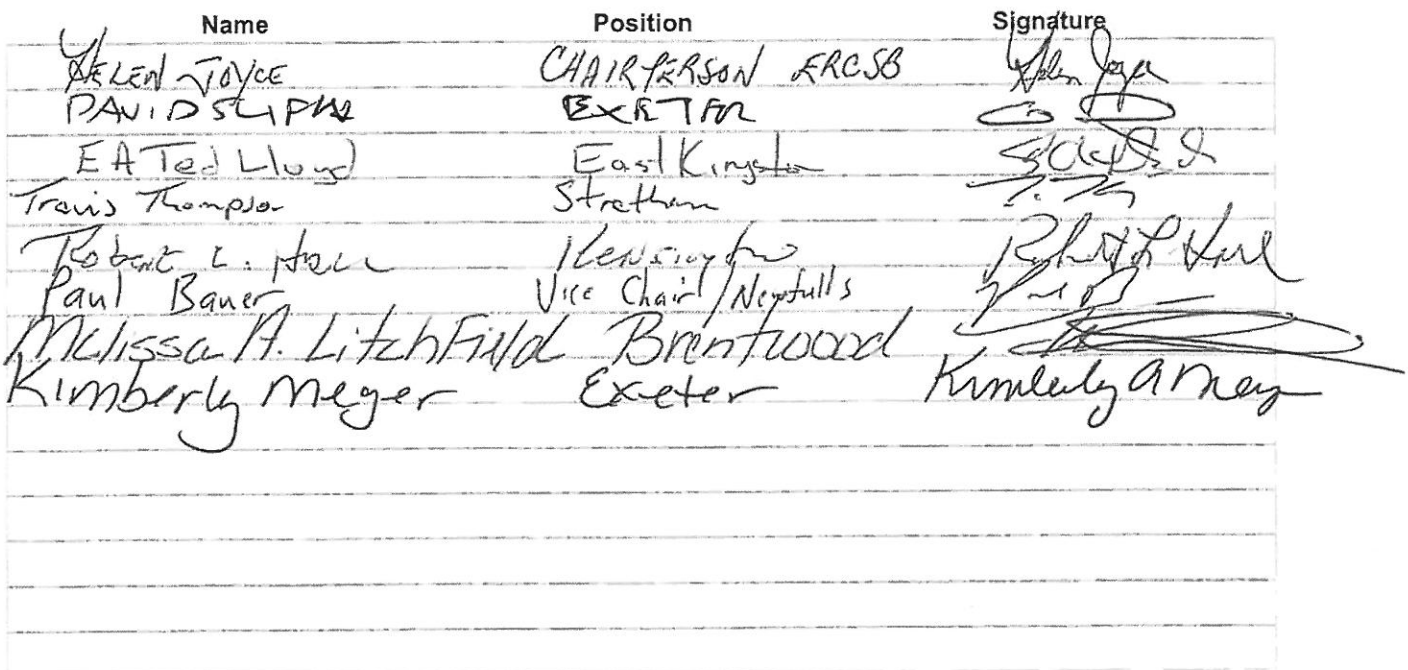 Name Position Signature
HELEN JOYCE CHAIRPERSON ERCSB Helen Joyce
DAVID EXETER
EA Ted Lloyd East Kingston
Travis Thompson Stratham
Robert L. Hall Kensington Robert L Hall
Paul Bauer Vice Chair/Newfields
Melissa A. Litchfield Brentwood
Kimberly Meyer Exeter Kimberly A Meyer